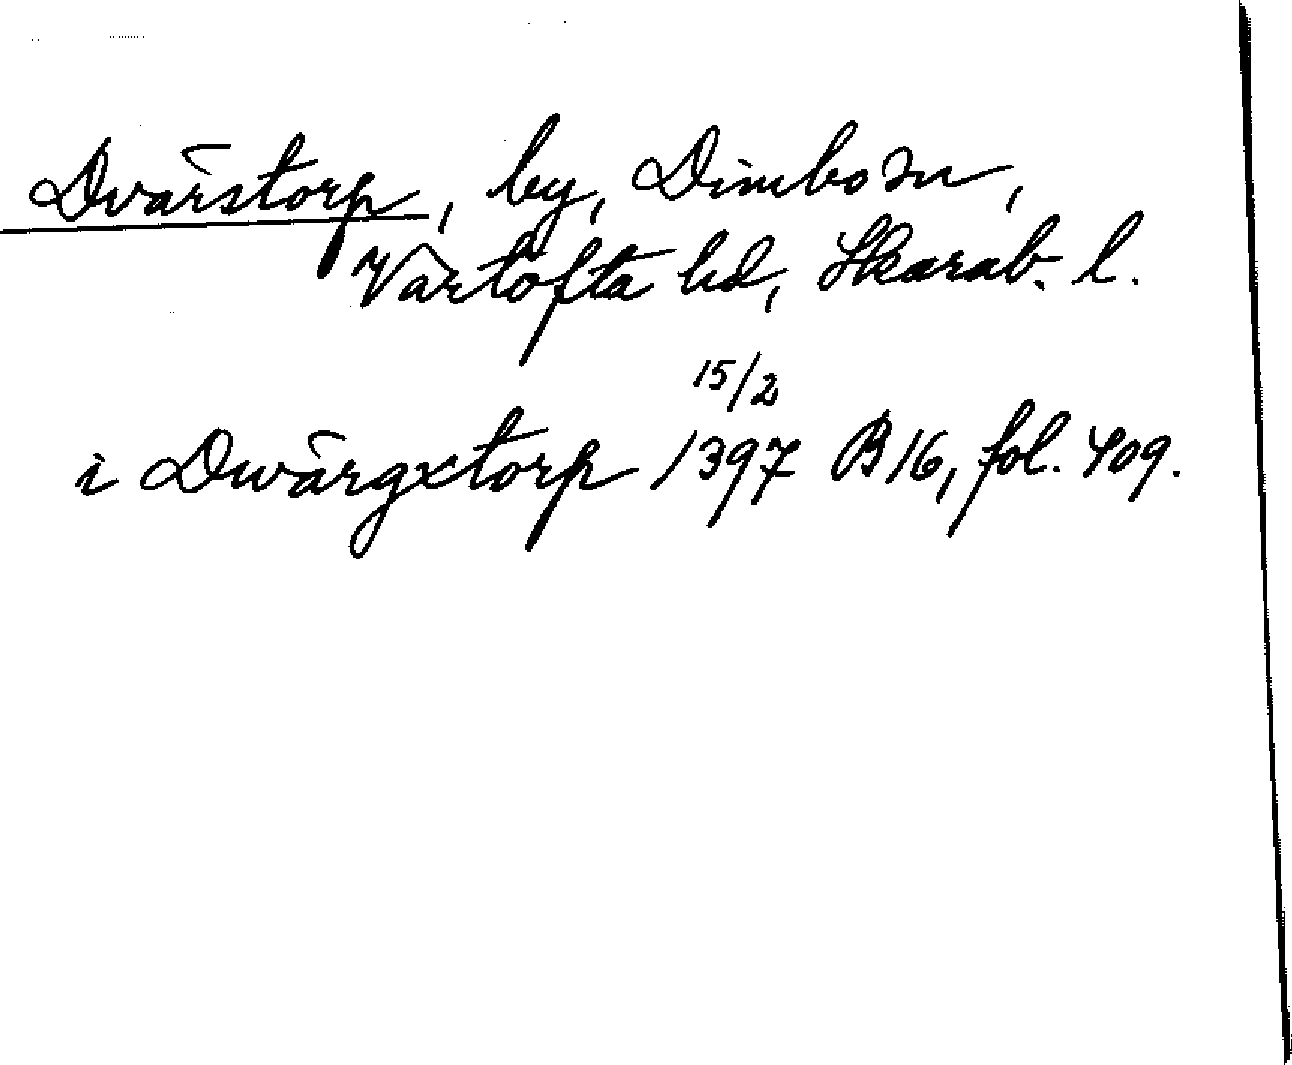 Dvärstorp, by, Dimbo sn,
Vartofta hd, Skarab. l.
15/2
i Dwärgxtorp 1397 B 16, fol. 409.